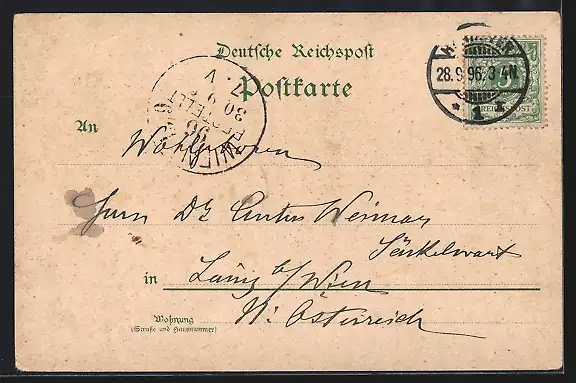 Deutsche Reichspost
Postkarte
28.9.96. 3-4N.
1
REICHSPOST
WIEN
BESTELLT
30 9 96
7. V
An Wohlgeboren
Herrn Dr Anton Weimar
in Lainz b/Wien
Wohnung
(Straße und Hausnummer)
N: Österreich